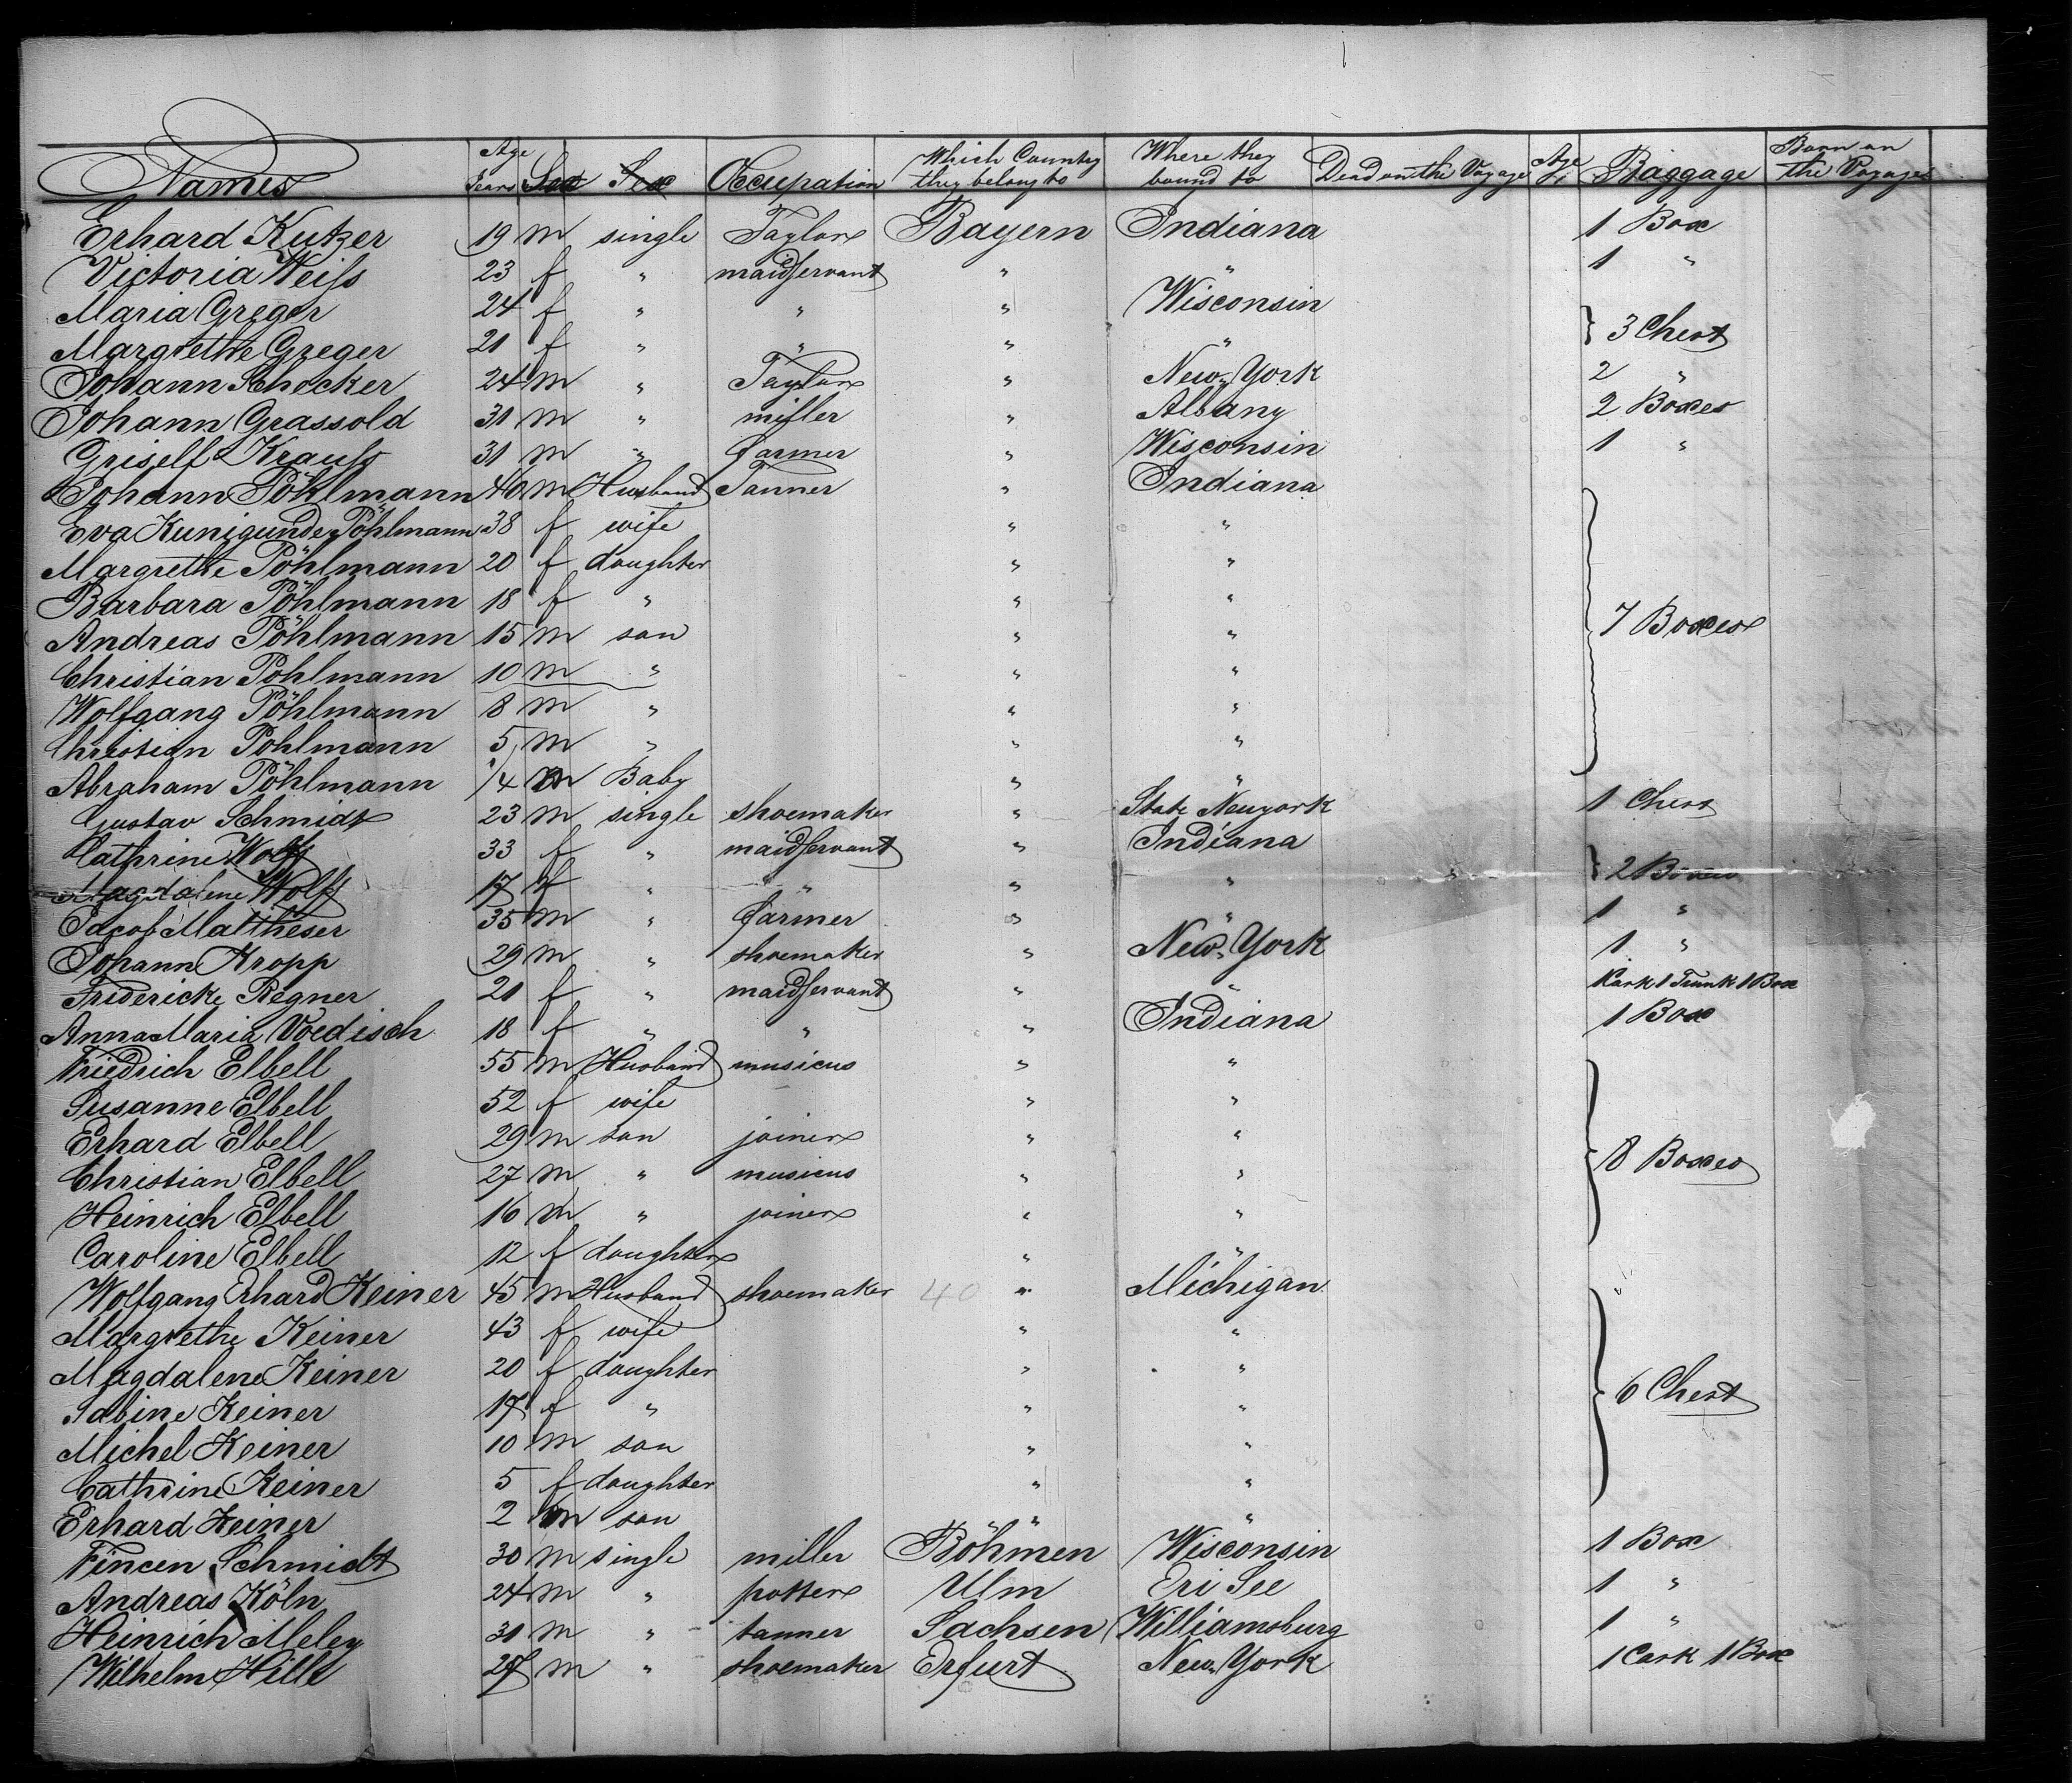 Names Age Years Sex Sex Occupation Which Country they belong to Where they bound to Dead on the Voyage Age Baggage Born on the Voyage
Erhard Kutzer 19 m single Taylor Bayern Indiana 1 Box
Victoria Weiſs 23 f " maidservant " " 1 "
Maria Greger 24 f " " " Wisconsin
Margrethe Greger 21 f " " " " } 3 Chest
Johann Schecker 24 m " Taylor " New-York 2 "
Johann Grassold 31 m " miller " Albany 2 Boxes
Grisell Krauſs 31 m " farmer " Wisconsin 1 "
Johann Pöhlmann 40 m Husband Tanner " Indiana
Eva Kunigunde Pöhlmann 38 f wife " "
Margrethe Pöhlmann 20 f daughter " "
Barbara Pöhlmann 18 f " " "
Andreas Pöhlmann 15 m son " " } 7 Boxes
Christian Pöhlmann 10 m " " "
Wolfgang Pöhlmann 8 m " " "
Christian Pöhlmann 5 m " " "
Abraham Pöhlmann 1/4 m Baby " "
Gustav Schmidt 23 m single shoemaker " State Newyork 1 Chest
Cathrine Wolff 33 f " maidservant " Indiana
Magdalene Wolff 17 f " " " " } 2 Boxes
Jacob Mattheser 35 m " farmer " " 1 "
Johann Kropp 29 m " shoemaker " New-York 1 "
Fridericke Regner 21 f " maidservant " " 1 Trunk 1 Box
Anna Maria Voedisch 18 f " " " Indiana 1 Box
Friedrich Elbell 55 m Husband musicus " "
Susanne Elbell 52 f wife " "
Erhard Elbell 29 m son joiner " "
Christian Elbell 27 m " musicus " " } 8 Boxes
Heinrich Elbell 16 m " joiner " "
Caroline Elbell 12 f daughter " "
Wolfgang Erhard Keiner 45 m Husband shoemaker 40 " Michigan "
Margrethe Keiner 43 f wife " "
Magdalene Keiner 20 f daughter " "
Sabine Keiner 17 f " " " } 6 Chest
Michel Keiner 10 m son " "
Cathrine Keiner 5 f daughter " "
Erhard Keiner 2 m son " "
Fincen Schmidt 30 m single miller Böhmen Wisconsin 1 Box
Andreas Köln 24 m " potter Ulm Eri See 1 "
Heinrich Meley 31 m " tanner Sachsen Williamsburg 1 "
Wilhelm Hille 27 m " shoemaker Erfurt New-York 1 Cask 1 Box